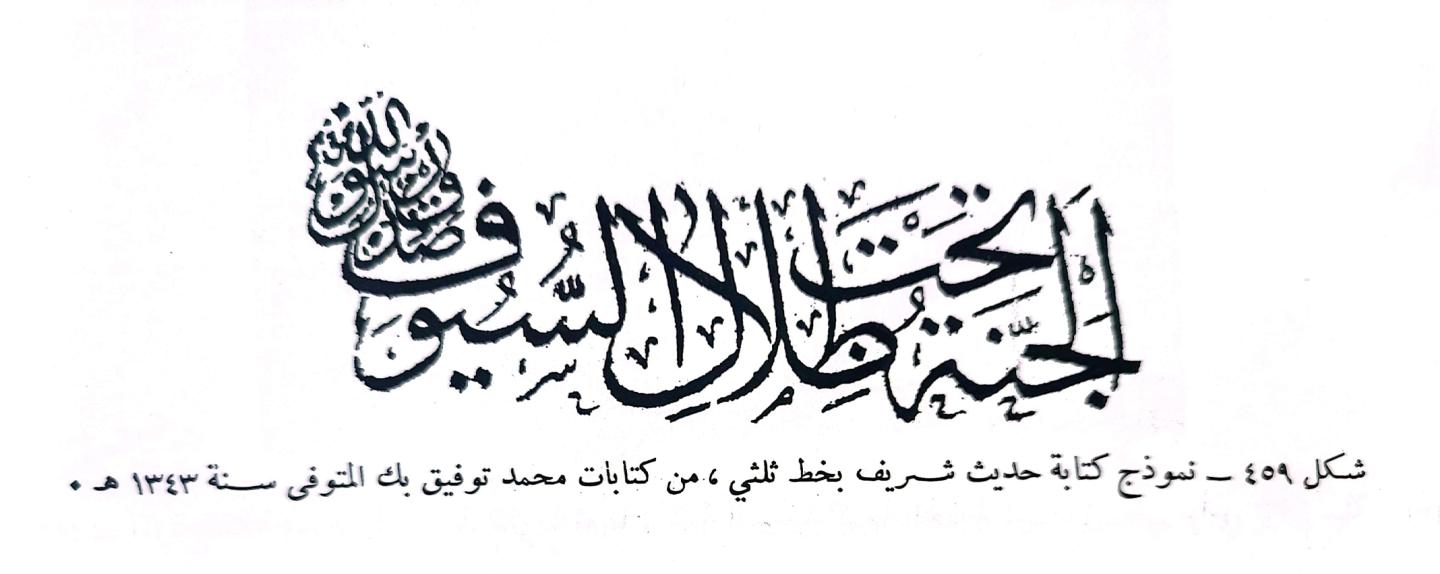 الجنة تحت ظلال السيوف
صدق رسول الله
شكل ٤٥٩ ــ نموذج كتابة حديث شــريف بخط ثلثي ، من كتابات محمد توفيق بك المتوفى ســنة ١٣٤٣ هـ ٠